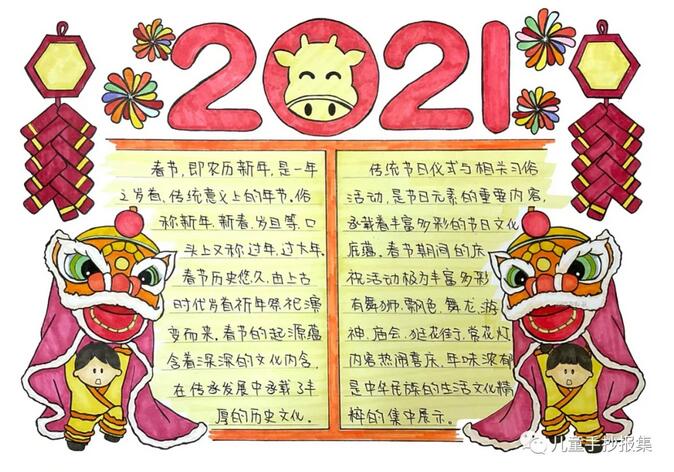 2021
春节,即农历新年,是一年
之岁首,传统意义上的年节。俗
称新年、新春、岁旦等,口
头上又称过年、过大年。
春节历史悠久,由上古
时代岁首祈年祭祀演
变而来。春节的起源蕴
含着深深的文化内含,
在传承发展中承载了丰
厚的历史文化。
传统节日仪式与相关习俗
活动,是节日元素的重要内容,
承载着丰富多彩的节日文化
底蕴。春节期间的庆
祝活动极为丰富多彩
有舞狮、飘色、舞龙、游
神、庙会、逛花街、赏花灯
内容热闹喜庆,年味浓郁
是中华民族的生活文化精
粹的集中展示。
儿童手抄报集